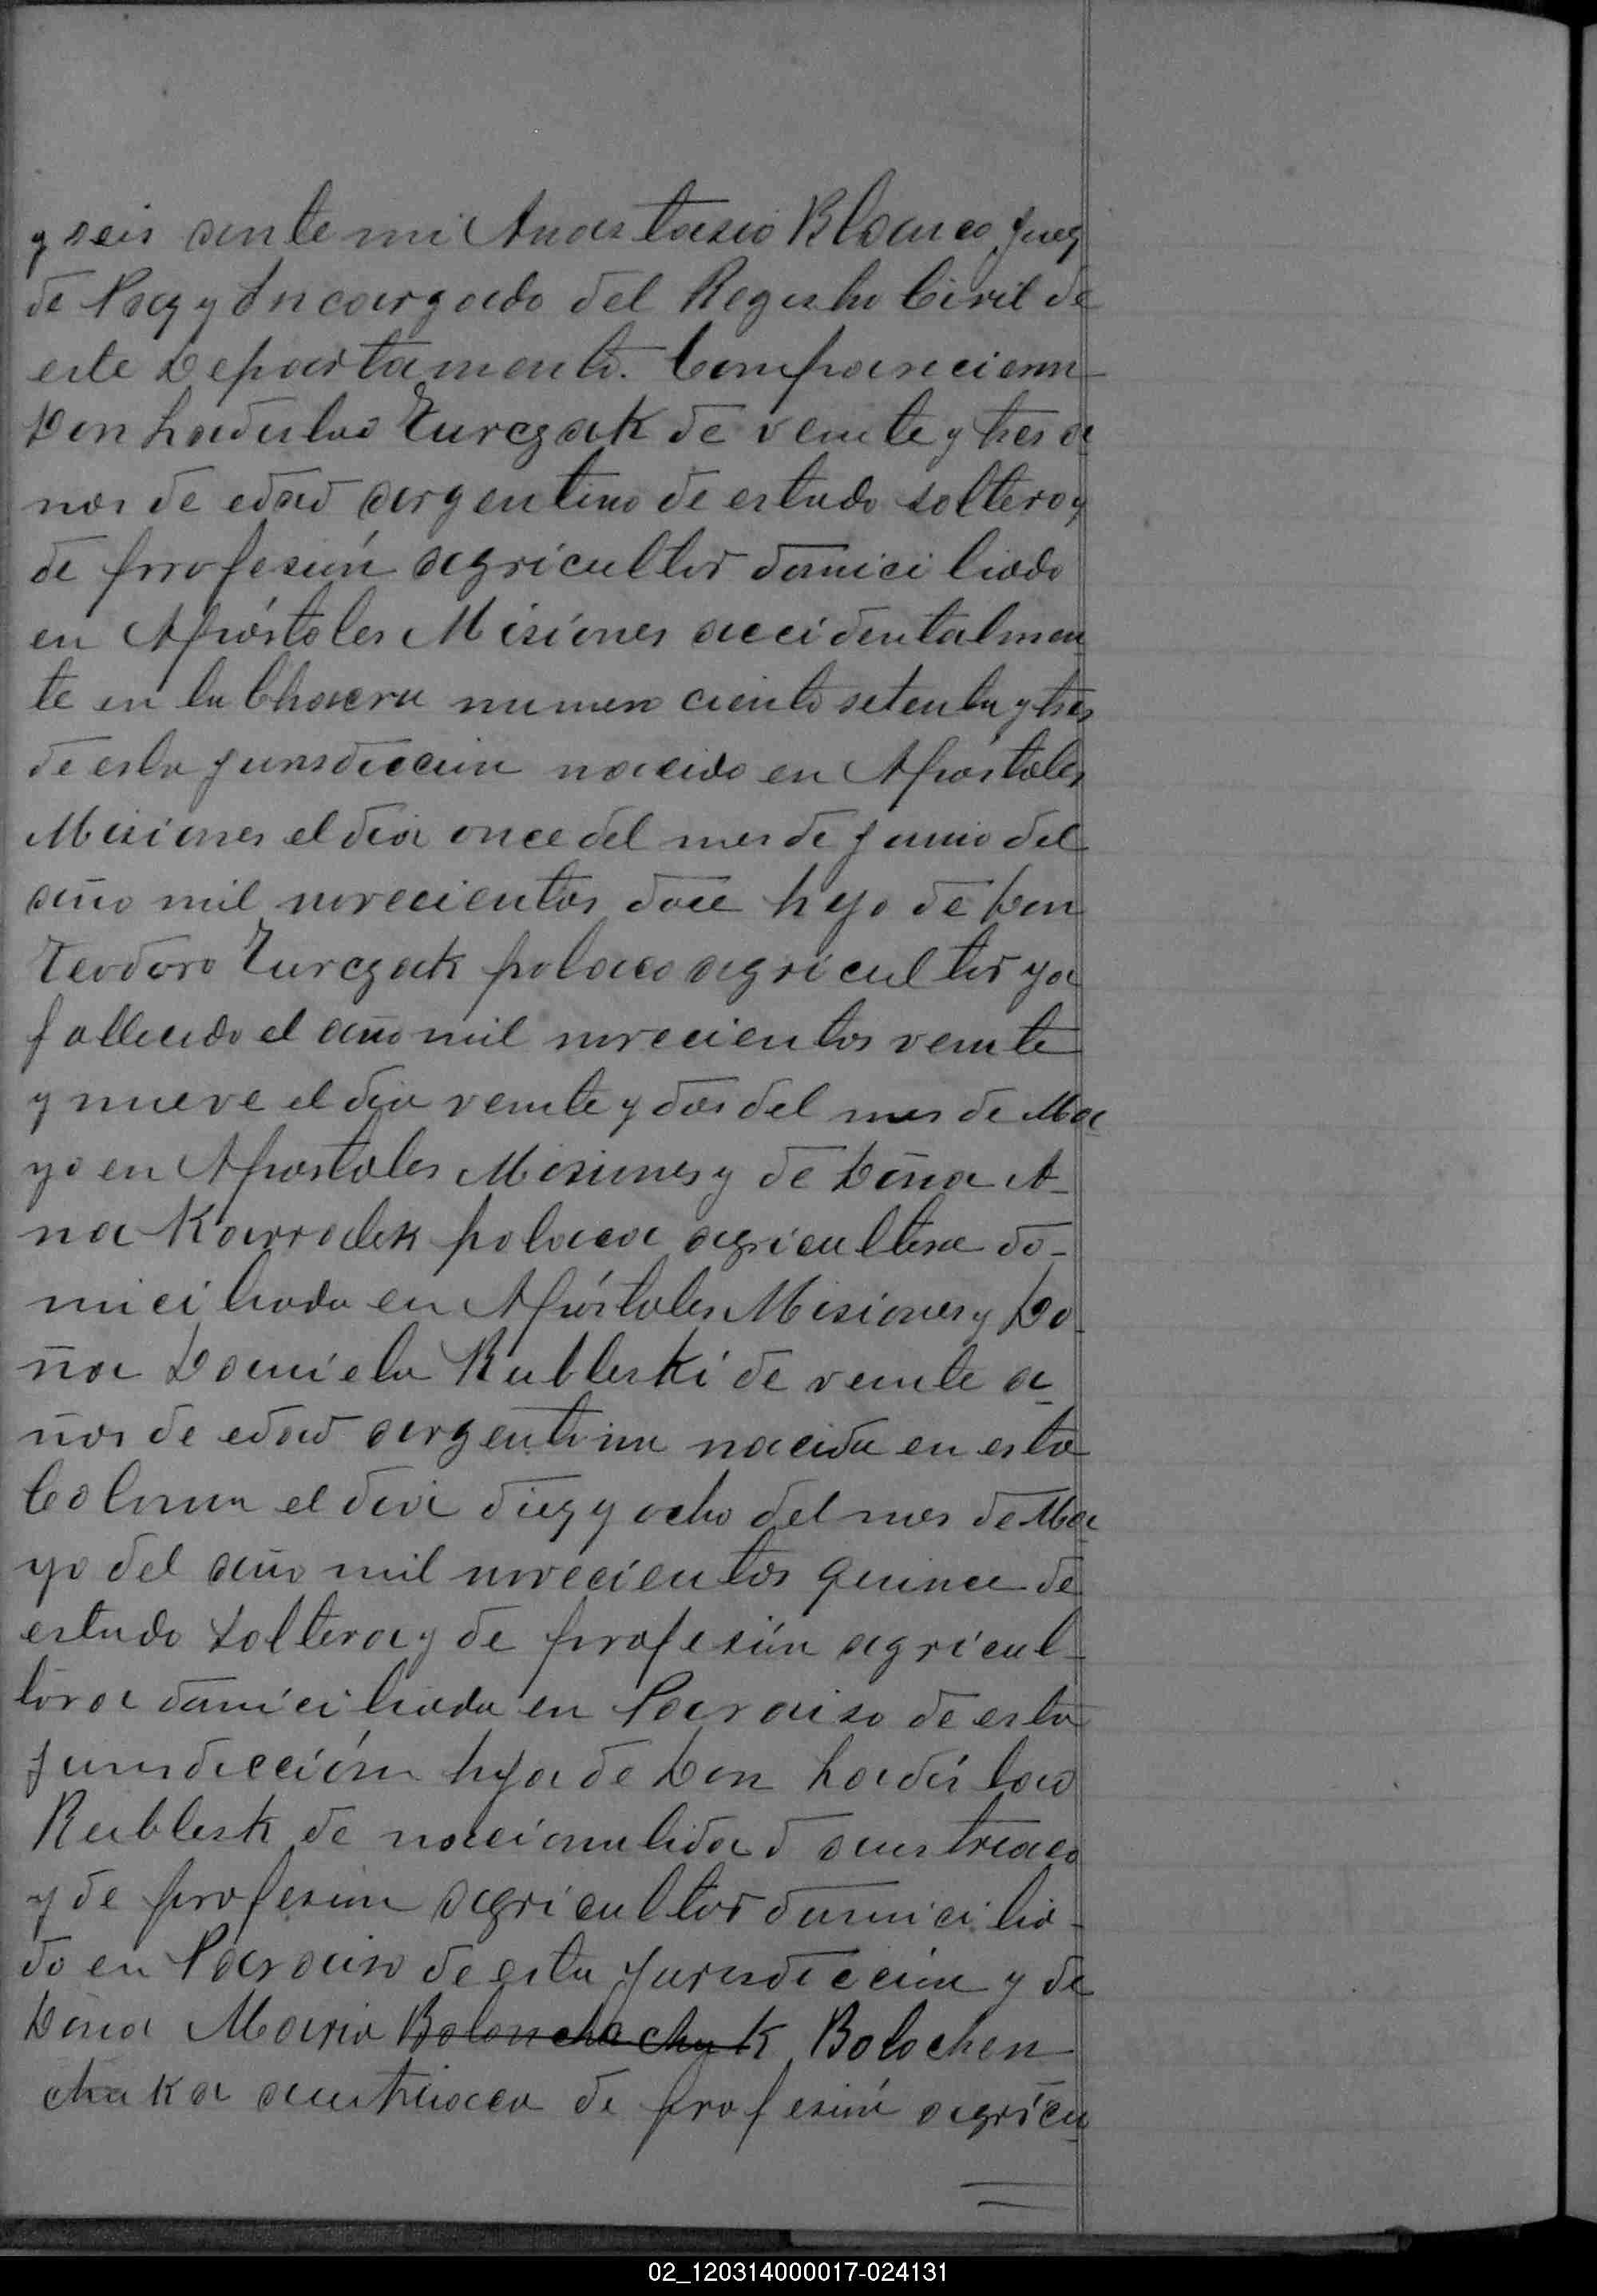 y seis ante mi Anastasio Blanco Juez
de Paz y Encargado del Registro Civil de
este Departamento. Comparecieron
Don Ladislao Turczak de veinte y tres a
nos de edad argentino de estado soltero y
de profesión agricultor domiciliado
en Apóstoles Misiones accidentalmen
te en la Chacra numero ciento setenta y tres
de esta jurisdiccion nacido en Apóstoles
Misiones el dia once del mes de Junio del
año mil novecientos doce hijo de Don
Teodoro Turczak polaco agricultor ya
fallecido el año mil novecientos veinte
y nueve el dia veinte y dos del mes de Ma
yo en Apostoles Misiones y de Doña A-
na Karradek polaca agricultora do-
miciliada en Apóstoles Misiones y Do-
ña Daniela Rubleski de veinte a
ños de edad argentina nacida en esta
Colonia el dia diez y ocho del mes de Ma
yo del año mil novecientos quince de
estado soltera y de profesión agricul-
tora domiciliada en Paraiso de esta
jurisdicción hija de Don Ladislao
Rublesk de nacionalidad austriaco
y de profesion agricultor domicilia-
do en Paraiso de esta Jurisdiccion y de
Doña Maria Bolonchachuk Bolochen
chuka austriaca de profesión agricu
02_120314000017-024131